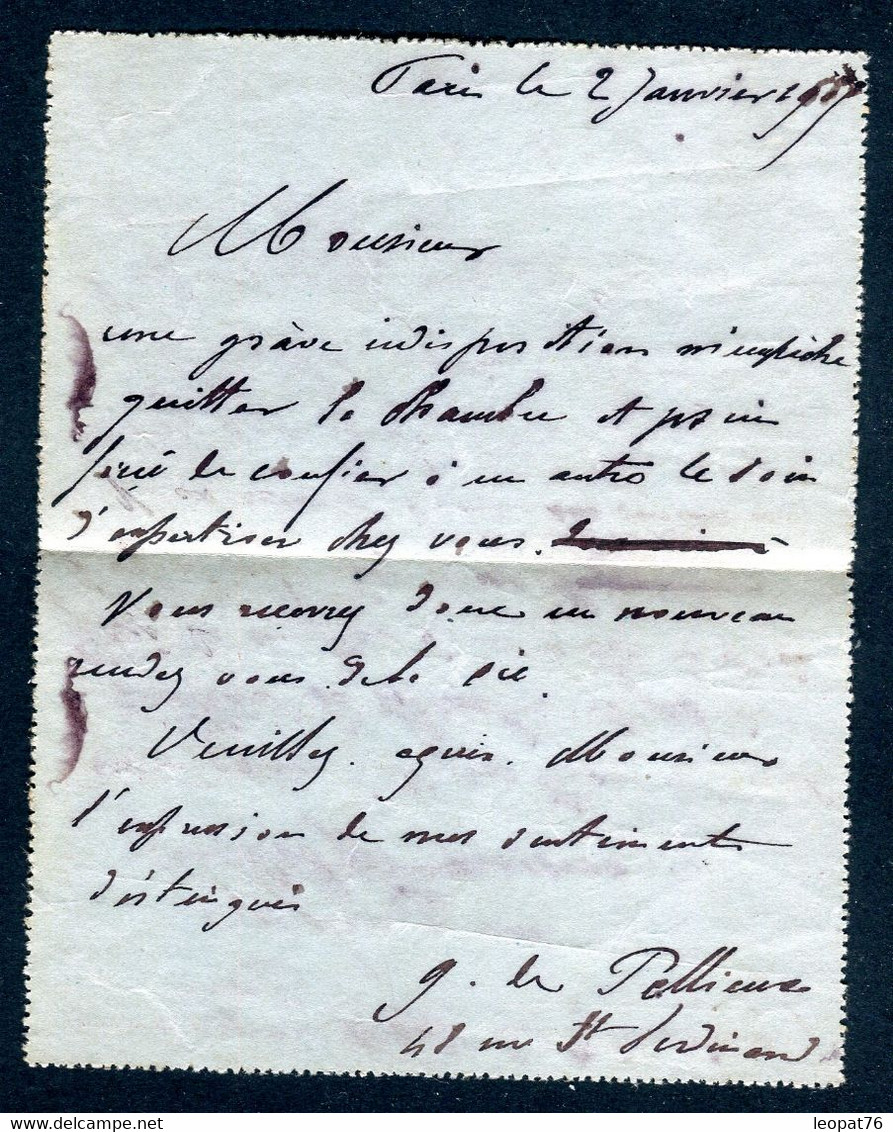 Paris le 2 Janvier
Monsieur
une grave indisposition m'empêche
quitter la chambre et je suis
forcé de confier à un autre le soin
d'expertiser chez vous.
Vous recevrez donc un nouveau
rendez vous de la
Veuillez agréer Monsieur
l'expression de mes sentiments
distingués
G. de Pellieux
48 rue St Ferdinand
leopat76